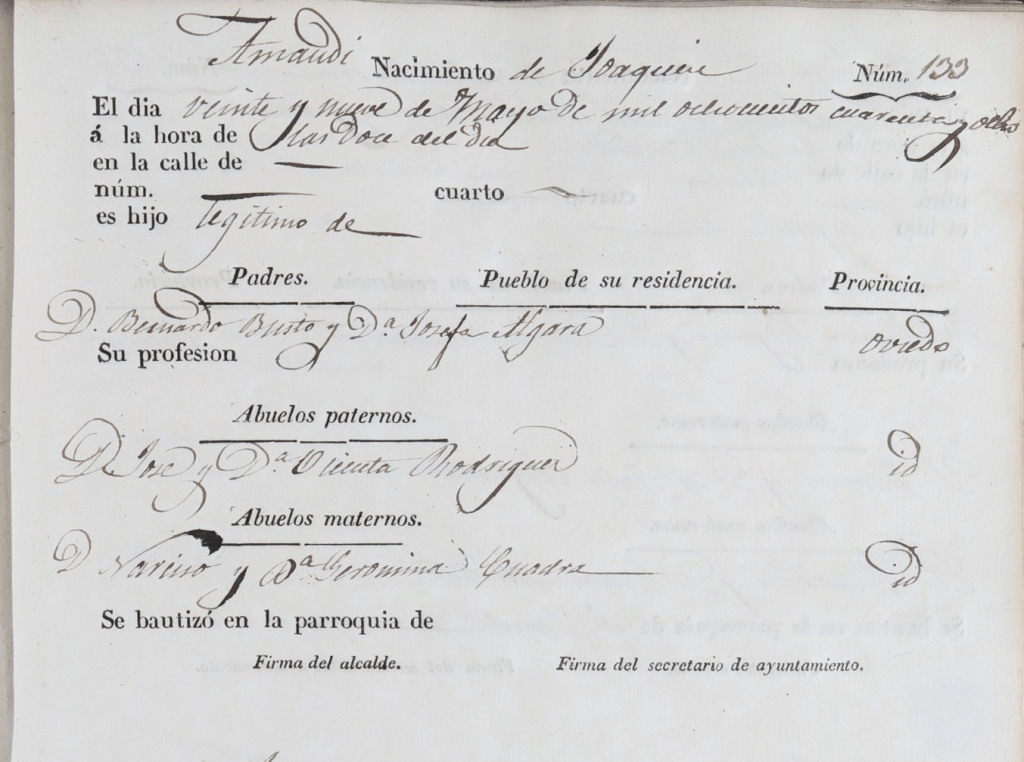 Amandi
Nacimiento de Joaquin Núm. 133
El dia veinte y nueve de Mayo de mil ochocientos cuarenta y ocho
á la hora de las doce del dia
en la calle de
núm. cuarto
es hijo legitimo de
Padres. Pueblo de su residencia. Provincia.
D. Bernardo Busto y Dª Josefa Algara Oviedo
Su profesion
Abuelos paternos.
D José y Dª Vicenta Rodriguez id
Abuelos maternos.
D y Dª Geronima Cuadra id
Se bautizó en la parroquia de
Firma del alcalde. Firma del secretario de ayuntamiento.